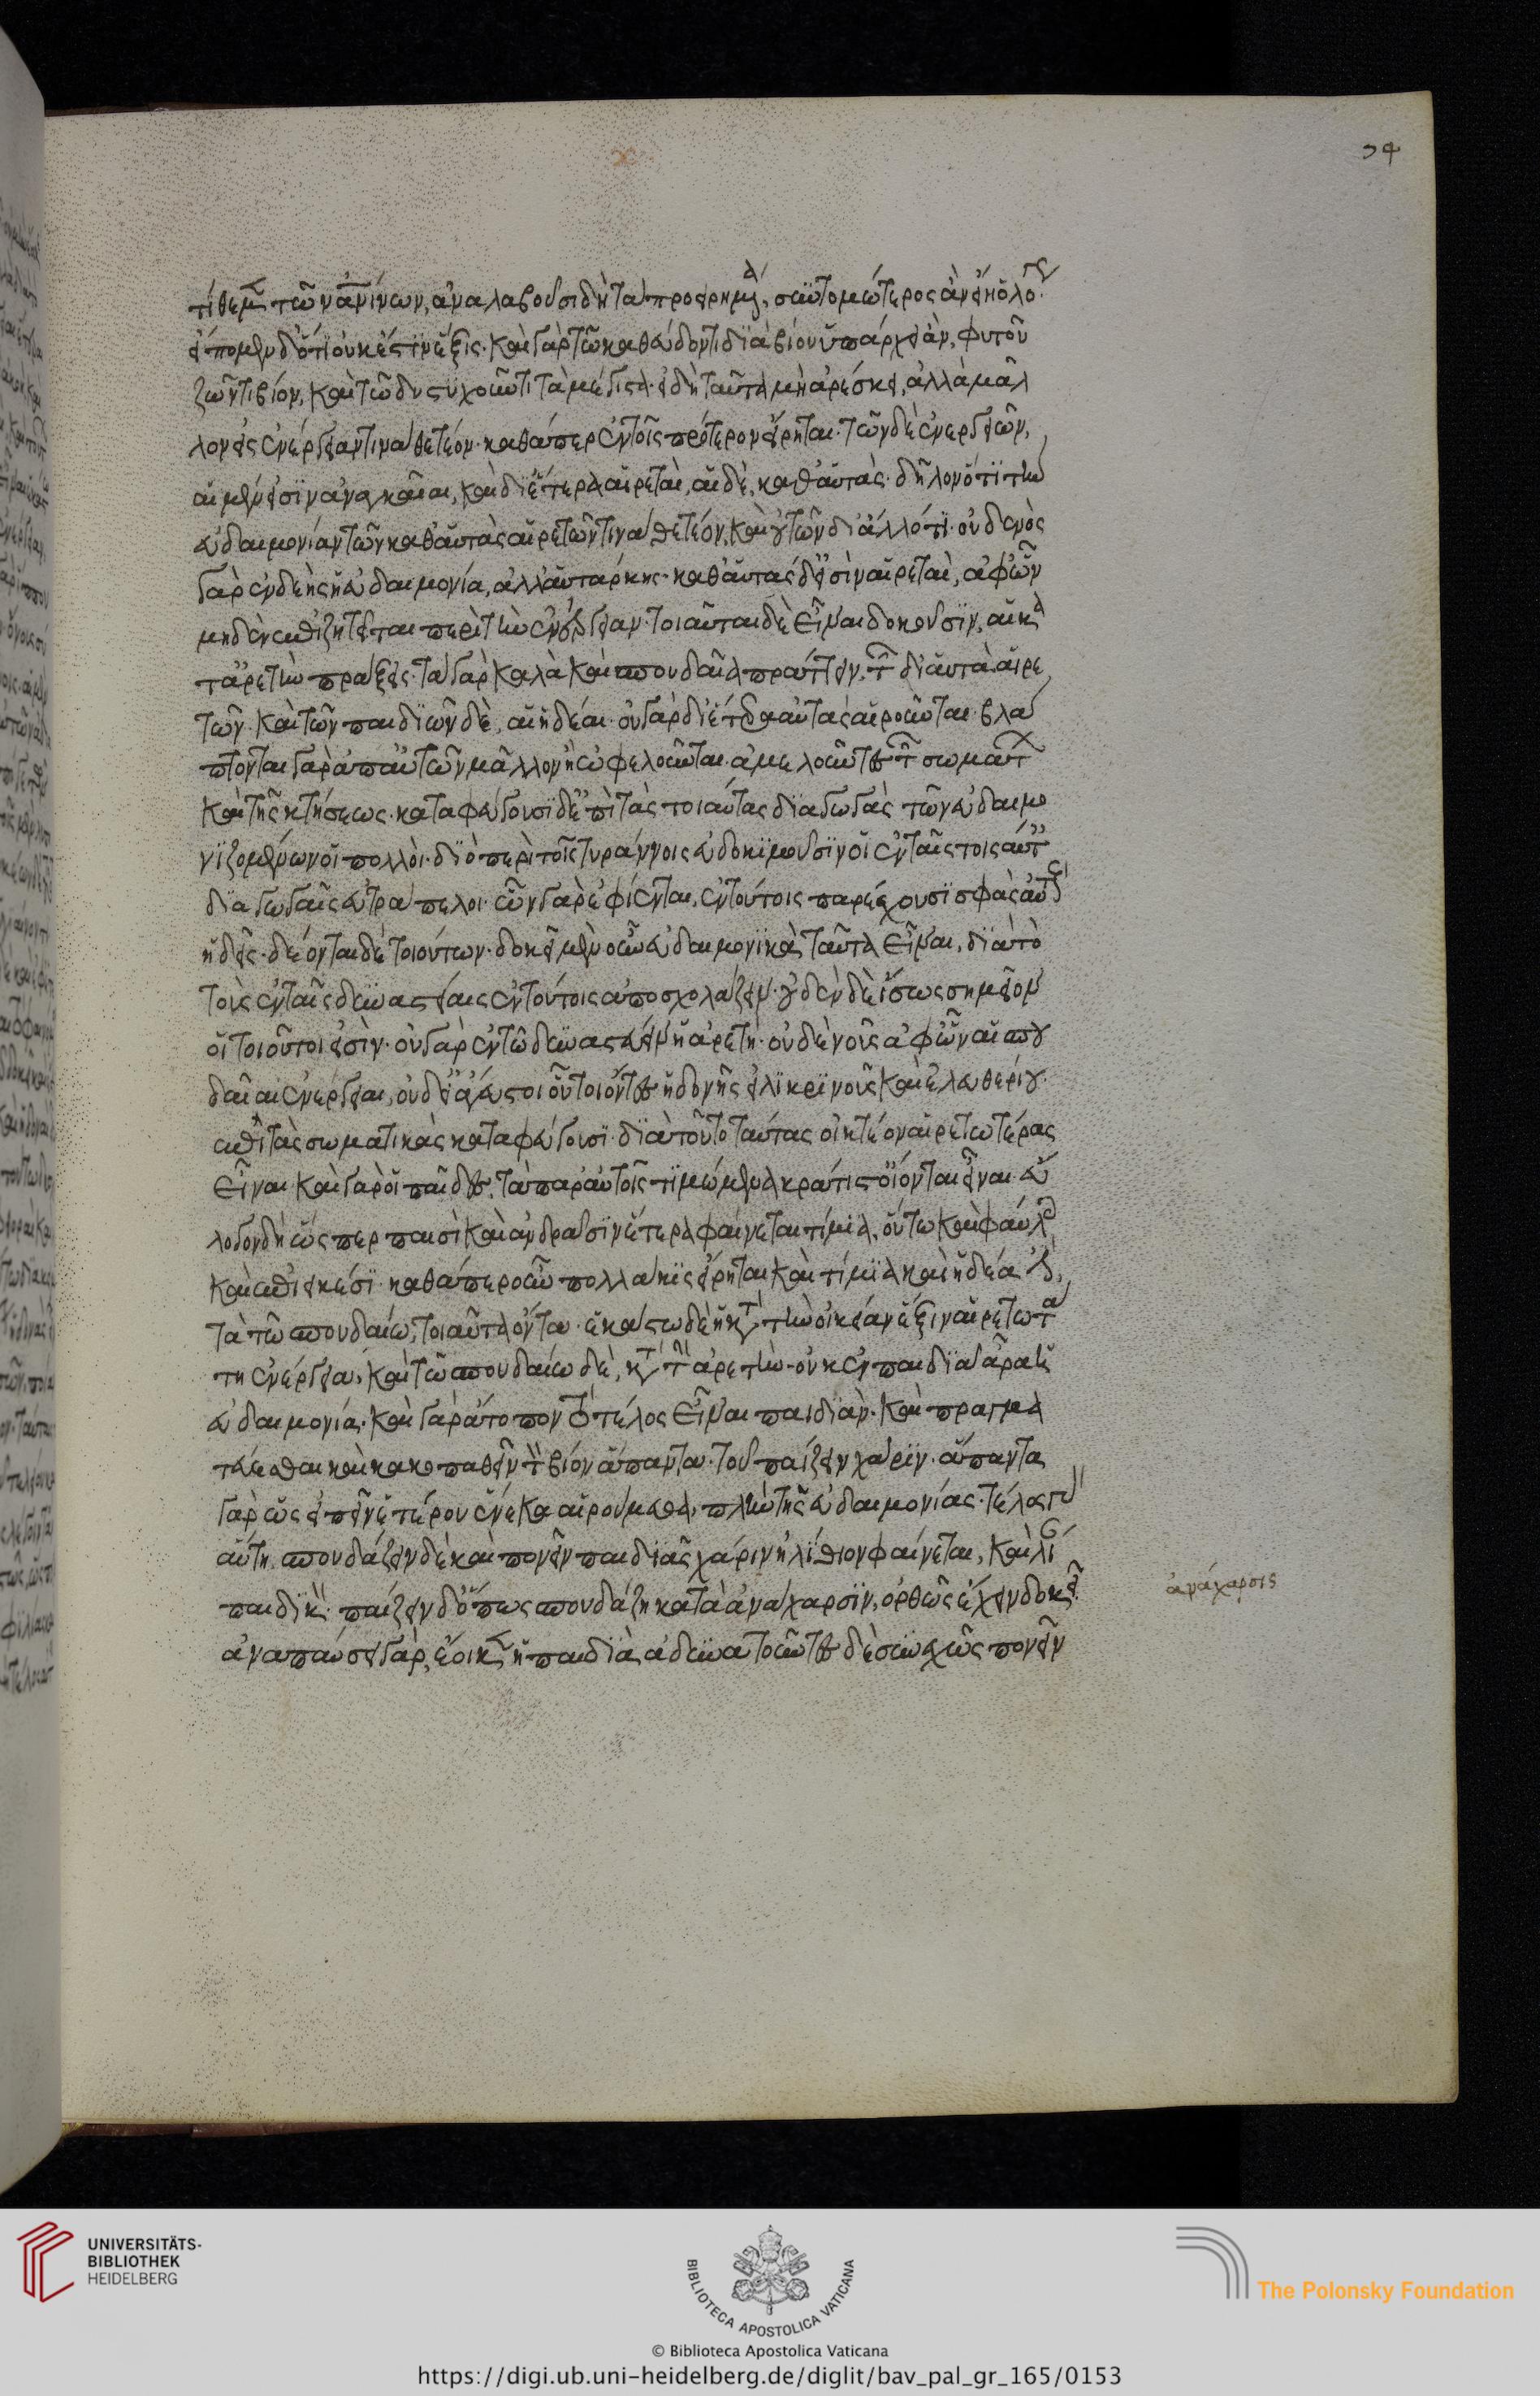 74
τίθεμεν τῶν ἀνθρωπίνων, ἀναλαβοῦσι δὴ τὰ προειρημένα, συντομώτερος ἂν εἴη ὁ λόγος.
εἴπομεν δ' ὅτι οὐκ ἔστιν ἕξις. καὶ γὰρ τῷ καθεύδοντι διὰ βίου ὑπάρχει ἂν, φυτοῦ
ζῶντι βίον, καὶ τῷ δυστυχοῦντι τὰ μέγιστα. εἰ δὴ ταῦτα μὴ ἀρέσκει, ἀλλὰ μᾶλ
λον εἰς ἐνέργειαν τινὰ θετέον. καθάπερ ἐν τοῖς πρότερον εἴρηται. τῶν δὲ ἐνεργειῶν,
αἱ μέν εἰσιν ἀναγκαῖαι, καὶ δι' ἕτερα αἱρεταὶ, αἱ δὲ, καθ' αὑτὰς. δῆλον ὅτι τὴν
εὐδαιμονίαν τῶν καθ' αὑτὰς αἱρετῶν τινα θετέον, καὶ οὐ τῶν δι' ἄλλό τι. οὐδενὸς
γὰρ ἐνδεὴς ἡ εὐδαιμονία, ἀλλ' αὐτάρκης. καθ' αὑτὰς δ' εἰσὶν αἱρεταὶ, ἀφ' ὧν
μηδὲν ἐπιζητεῖται περὶ τὴν ἐνέργειαν. τοιαῦται δὲ εἶναι δοκοῦσιν, αἱ κα
τ' ἀρετὴν πράξεις. τὰ γὰρ καλὰ καὶ σπουδαῖα πράττειν, τῶν δι' αὑτὰ αἱρε
τῶν. καὶ τῶν παιδιῶν δὲ, αἱ ἡδεῖαι. οὐ γὰρ δι' ἕτερα αὐτὰς αἱροῦνται. βλά
πτονται γὰρ ἀπ' αὐτῶν μᾶλλον ἢ ὠφελοῦνται. ἀμελοῦντες τῶν σωμάτων
καὶ τῆς κτήσεως. καταφεύγουσι δ' ἐπὶ τὰς τοιαύτας διαγωγὰς τῶν εὐδαιμο
νιζομένων οἱ πολλοί. διὸ περὶ τοῖς τυράννοις εὐδοκιμοῦσιν οἱ ἐν ταῖς τοιαύταις
διαγωγαῖς εὐτράπελοι. ὧν γὰρ ἐφίενται, ἐν τούτοις παρέχουσι σφᾶς αὐτοὺς
ἡδεῖς. δέονται δὲ τοιούτων. δοκεῖ μὲν οὖν εὐδαιμονικὰ ταῦτα εἶναι, διὰ τὸ
τοὺς ἐν ταῖς δυναστείαις ἐν τούτοις ἀποσχολάζειν. οὐδὲν δὲ ἴσως σημεῖον
οἱ τοιοῦτοι εἰσίν. οὐ γὰρ ἐν τῷ δυναστεύειν ἡ ἀρετὴ. οὐδὲ νοῦς ἀφ' ὧν αἱ σπου
δαῖαι ἐνέργειαι, οὐδ' εἰ ἄγευστοι οὗτοι ὄντες ἡδονῆς εἰλικρινοῦς καὶ ἐλευθερίου.
ἐπὶ τὰς σωματικὰς καταφεύγουσι. διὰ τοῦτο ταύτας οἰητέον αἱρετωτέρας
εἶναι. καὶ γὰρ οἱ παῖδες, τὰ παρ' αὐτοῖς τιμώμενα κράτιστ' οἴονται εἶναι. εὔ
λογον δὴ ὥσπερ παισὶ καὶ ἀνδράσιν ἕτερα φαίνεται τίμια, οὕτω καὶ φαύλοις
καὶ ἐπιεικέσι. καθάπερ οὖν πολλάκις εἴρηται καὶ τίμια καὶ ἡδέα ἐστὶ,
τὰ τῷ σπουδαίῳ, τοιαῦτα ὄντα. ἑκάστῳ δὲ ἡ κατὰ τὴν οἰκείαν ἕξιν αἱρετωτά
τη ἐνέργεια, καὶ τῷ σπουδαίῳ δὲ, κατὰ τὴν ἀρετὴν. οὐκ ἐν παιδιᾷ ἄρα ἡ
εὐδαιμονία. καὶ γὰρ ἄτοπον τὸ τέλος εἶναι παιδιὰν. καὶ πραγμα
τεύεσθαι καὶ κακοπαθεῖν τὸν βίον ἅπαντα. τοῦ παίζειν χάριν. ἅπαντα
γὰρ ὡς εἰπεῖν ἑτέρου ἕνεκα αἱρούμεθα, πλὴν τῆς εὐδαιμονίας. τέλος γὰρ
αὕτη. σπουδάζειν δὲ καὶ πονεῖν παιδιᾶς χάριν ἠλίθιον φαίνεται, καὶ λίαν
παιδικὸν. παίζειν δ' ὅπως σπουδάζῃ κατὰ ἀνάχαρσιν, ὀρθῶς ἔχειν δοκεῖ.
ἀναπαύσει γὰρ, ἔοικεν ἡ παιδιὰ. ἀδυνατοῦντες δὲ συνεχῶς πονεῖν
ἀνάχαρσις
UNIVERSITÄTS-
BIBLIOTHEK
HEIDELBERG
BIBLIOTECA APOSTOLICA VATICANA
The Polonsky Foundation
© Biblioteca Apostolica Vaticana
https://digi.ub.uni-heidelberg.de/diglit/bav_pal_gr_165/0153